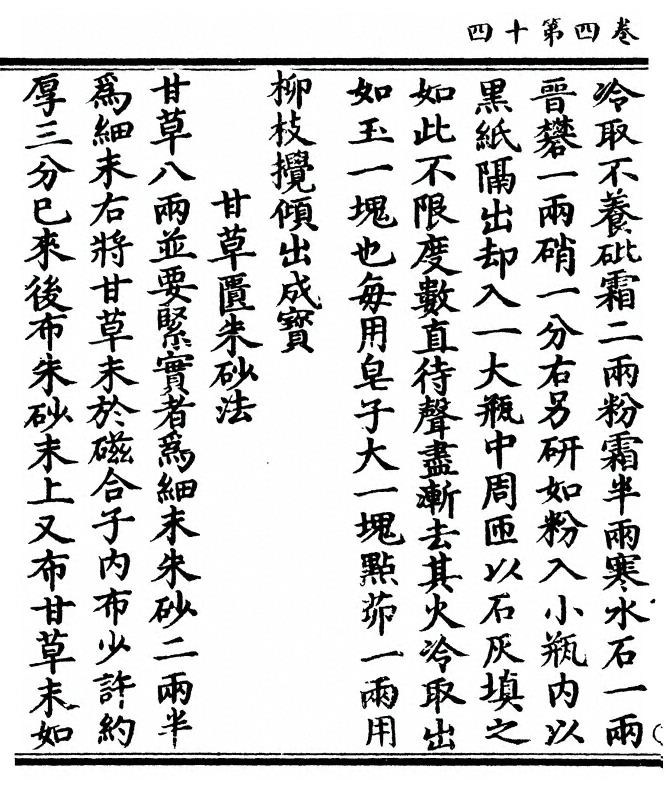 卷四第十四
冷取不養砒霜二兩粉霜半兩寒水石一兩
晉礬一兩硝一分右另研如粉入小瓶內以
黑紙隔出却入一大瓶中周匝以石灰填之
如此不限度數直待聲盡漸去其火冷取出
如玉一塊也每用皂子大一塊點茆一兩用
柳枝攪傾出成寳
甘草匱朱砂法
甘草八兩並要緊實者爲細末朱砂二兩半
爲細末右將甘草末於磁合子內布少許約
厚三分巳來後布朱砂末上又布甘草末如